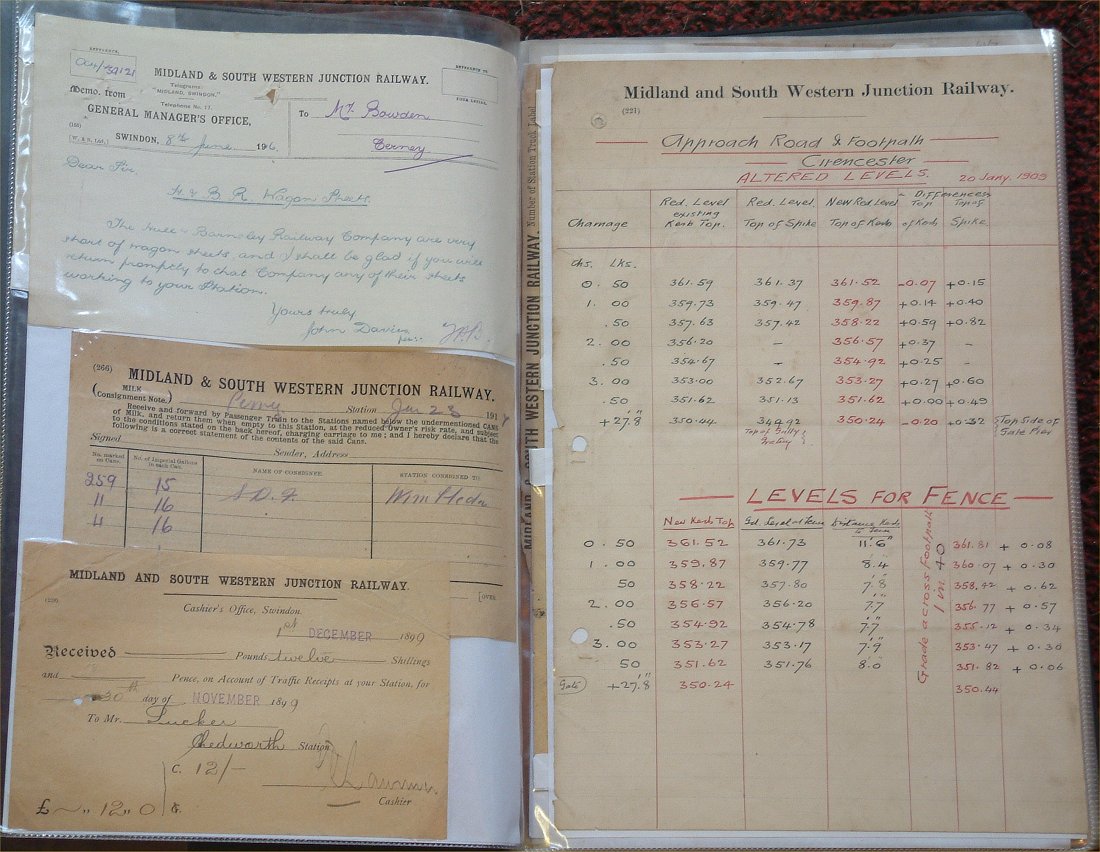 REFERENCE.
MIDLAND & SOUTH WESTERN JUNCTION RAILWAY.
REFERENCE TO
YOUR LETTER.
Telegrams
"MIDLAND, SWINDON."
Memo. from
Telephone No. 17.
GENERAL MANAGER'S OFFICE,
To Mr. Bowden
Cerney
SWINDON, 8th June 1916.
Dear Sir,
H & B. R. Wagon Sheets.
The Hull & Barnsley Railway Company are very
short of wagon sheets and I shall be glad if you will
return promptly to that Company any of their sheets
working to your Station.
Yours truly
John Davies
(266)
MIDLAND & SOUTH WESTERN JUNCTION RAILWAY.
MILK
(Consignment Note.)
Station Jan 28 191
Receive and forward by Passenger Train to the Stations named below the undermentioned CANS
of Milk, and return them when empty to this Station, at the reduced Owner's risk rate, and subject
to the conditions stated on the back hereof, charging carriage to me; and I hereby declare that the
following is a correct statement of the contents of the said Cans.
Signed
Sender, Address
No. marked on Cans.
No. of Imperial Gallons in each Can.
NAME OF CONSIGNEE.
STATION CONSIGNED TO.
259 15
11 16
11 16
[OVER.
MIDLAND AND SOUTH WESTERN JUNCTION RAILWAY.
Cashier's Office, Swindon.
1st DECEMBER 1899
Received Pounds twelve Shillings
and Pence, on Account of Traffic Receipts at your Station, for
30th day of NOVEMBER 1899
To Mr. Tucker
Chedworth Station
C. 12/-
Cashier
£ ~ " 12 " 0
MIDLAND & SOUTH WESTERN JUNCTION RAILWAY. Number of Station Truck Label
Midland and South Western Junction Railway.
(227)
Approach Road & Footpath
Cirencester
ALTERED LEVELS. 20 Jany. 1909
Chainage
Red. Level existing Kerb Top.
Red. Level Top of Spike
New Red Level Top of Kerb
Differences
Top of Kerb
Top of Spike
Chs. Lks.
0. 50 361.59 361.37 361.52 -0.07 +0.15
1. 00 359.73 359.47 359.87 +0.14 +0.40
.50 357.63 357.42 358.22 +0.59 +0.82
2. 00 356.20 - 356.57 +0.37 -
.50 354.67 - 354.92 +0.25 -
3. 00 353.00 352.67 353.27 +0.27 +0.60
.50 351.62 351.13 351.62 +0.00 +0.49
+27'.8" 350.44 349.92 350.24 -0.20 +0.32 Top Side of Gate Pier
LEVELS FOR FENCE
New Kerb Top
Gd. Level at Fence
Distance Kerb to Fence
Grade across footpath 1 in 40
0. 50 361.52 361.73 11'.6" 361.81 + 0.08
1. 00 359.87 359.77 8.4 360.07 + 0.30
50 358.22 357.80 7.8 358.42 + 0.62
2. 00 356.57 356.20 7.7 356.77 + 0.57
.50 354.92 354.78 7.7 355.12 + 0.34
3. 00 353.27 353.17 7.9 353.47 + 0.30
50 351.62 351.76 8.0 351.82 + 0.06
Gate +27'.8" 350.24 350.44